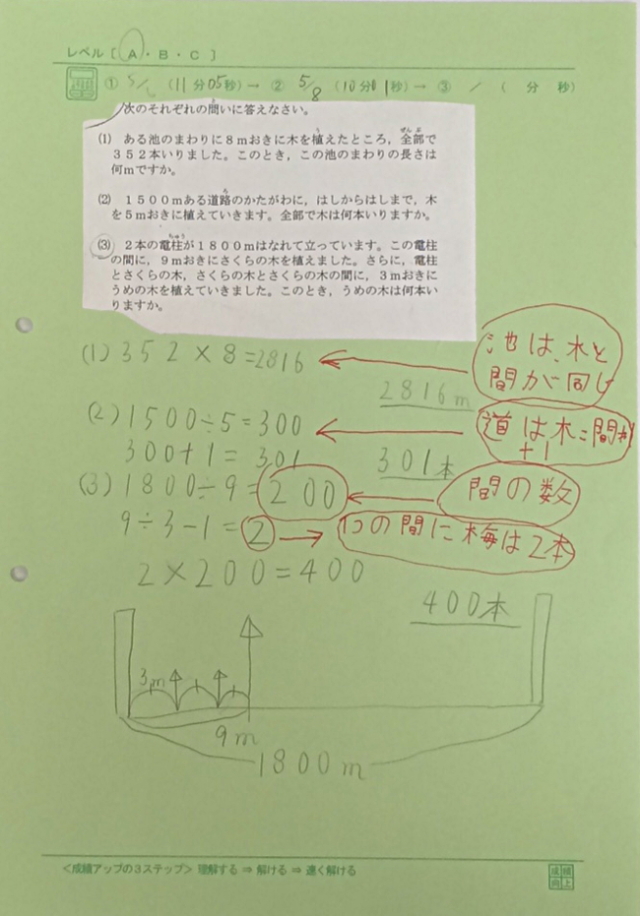 レベル [ A・B・C ]
① 5/ (11分05秒)→ ② 5/8 (10分01秒)→ ③ / ( 分 秒)
次のそれぞれの問いに答えなさい。
(1) ある池のまわりに8mおきに木を植えたところ,全部で
352本いりました。このとき,この池のまわりの長さは
何mですか。
(2) 1500mある道路のかたがわに,はしからはしまで,木
を5mおきに植えていきます。全部で木は何本いりますか。
(3) 2本の電柱が1800mはなれて立っています。この電柱
の間に,9mおきにさくらの木を植えました。さらに,電柱
とさくらの木,さくらの木とさくらの木の間に,3mおきに
うめの木を植えていきました。このとき,うめの木は何本い
りますか。
(1) 352×8=2816
池は、木と
間が同じ
2816m
(2) 1500÷5=300
道は木=間
+1
300+1=301
301本
(3) 1800÷9=200
間の数
9÷3-1=2
1つの間に梅は2本
2×200=400
400本
3m
9m
1800m
<成績アップの3ステップ> 理解する ⇒ 解ける ⇒ 速く解ける
成績
向上